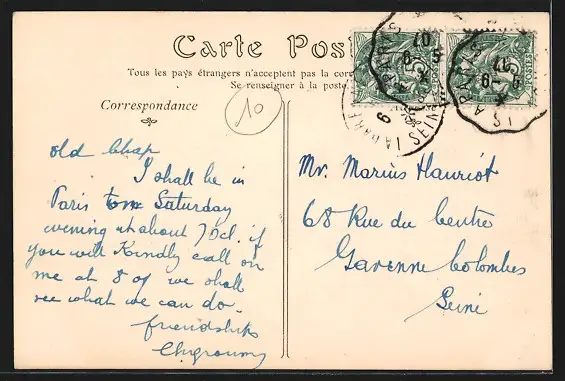 Carte Pos
Tous les pays étrangers n'acceptent pas la cor
Se renseigner à la poste.
Correspondance
10
old Chap
I shall be in
Paris Saturday
evening at about 7 ocl. if
you will Kindly call on
me at 8 of we shall
see what we can do
friendship
Mr. Marius Hauriot
68 Rue du Centre
Garenne Colombes
Seine
POSTES
A PARIS
A PARIS
LA GARE
SEINE